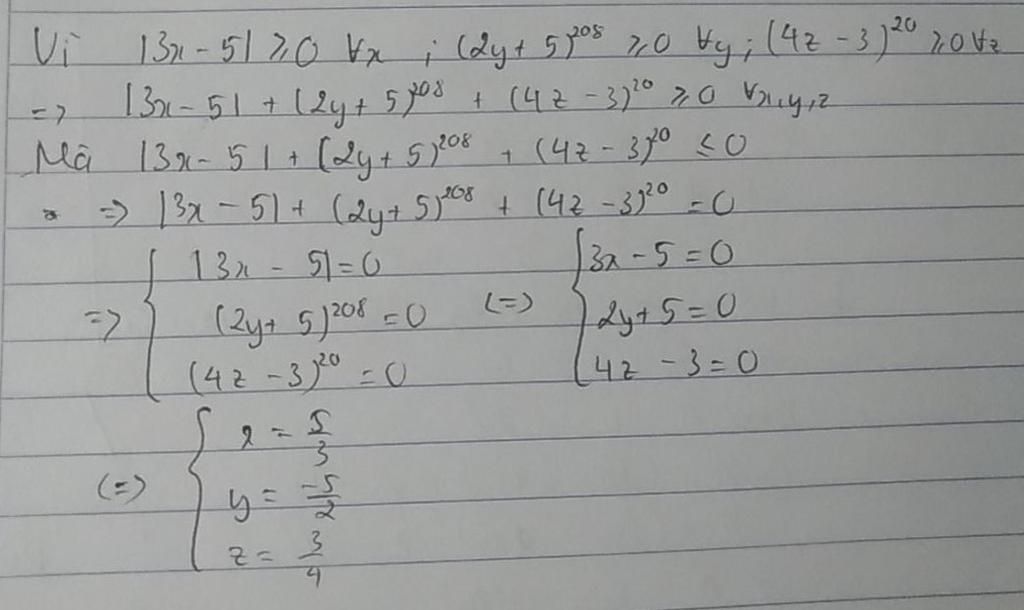 Vì |3x - 5| ⩾ 0 ∀x ; (2y + 5)^208 ⩾ 0 ∀y ; (4z - 3)^20 ⩾ 0 ∀z
=> |3x - 5| + (2y + 5)^208 + (4z - 3)^20 ⩾ 0 ∀x,y,z
Mà |3x - 5| + (2y + 5)^208 + (4z - 3)^20 ≤ 0
=> |3x - 5| + (2y + 5)^208 + (4z - 3)^20 = 0
=> { |3x - 5| = 0 (=) { 3x - 5 = 0
(2y + 5)^208 = 0 2y + 5 = 0
(4z - 3)^20 = 0 4z - 3 = 0
(=) { x = 5/3
y = -5/2
z = 3/4